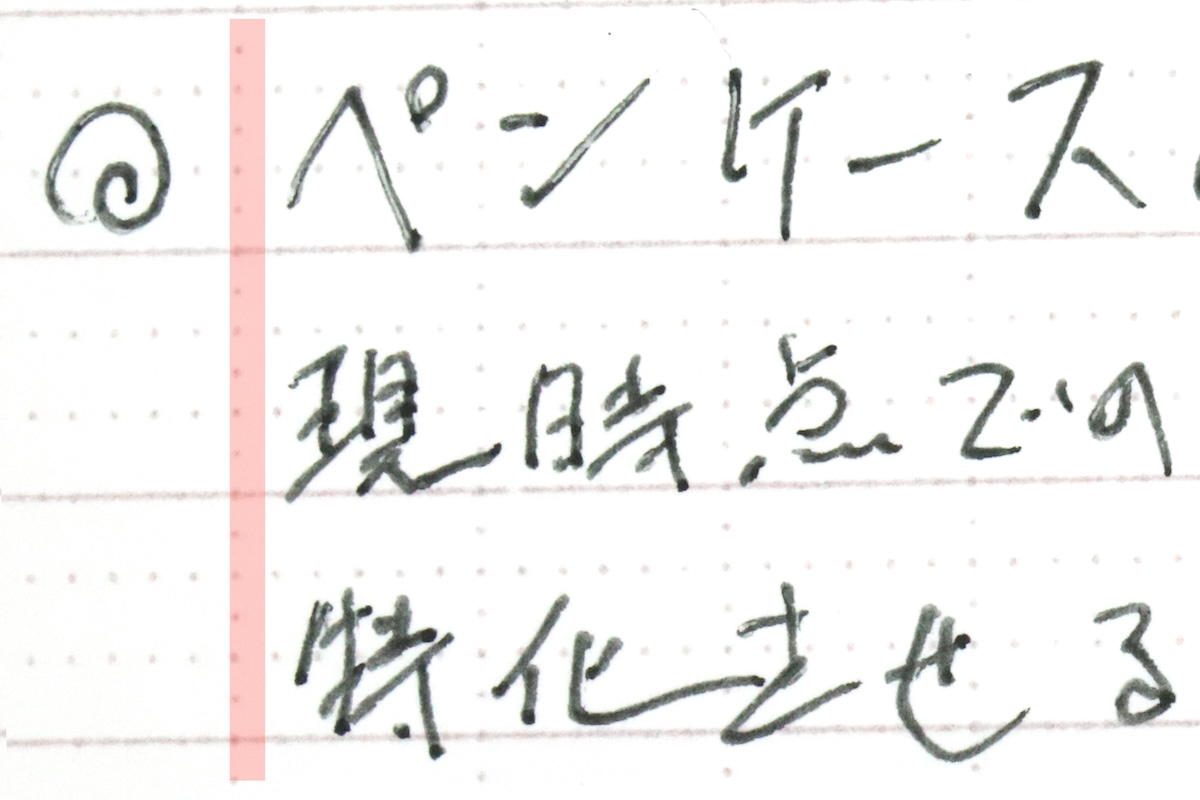 ◎ ペンケース
現時点での
特化させる